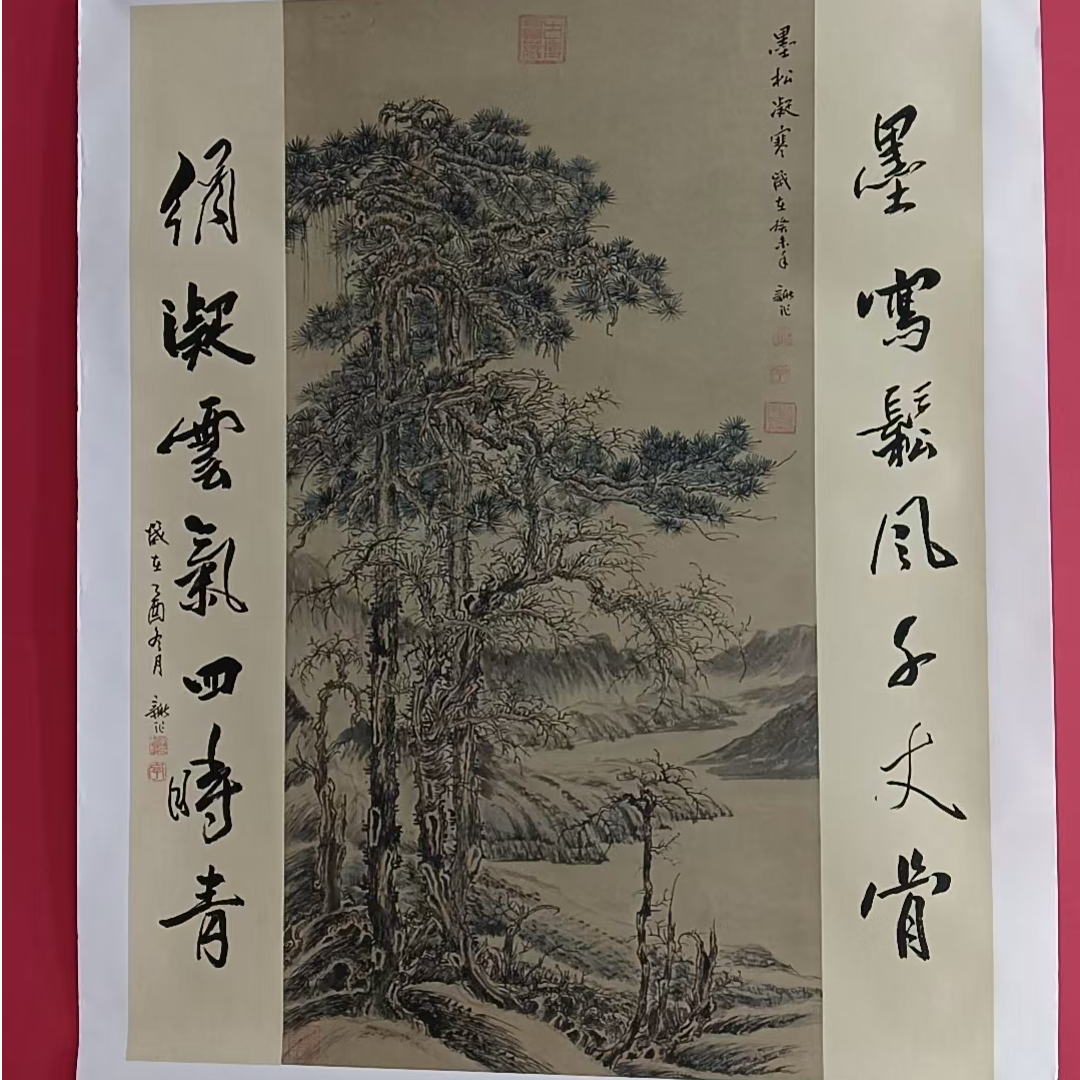 墨寫鬆風千丈骨
墨松凝寒 歲在癸未年
絹凝雲氣四時青
歲在乙酉冬月